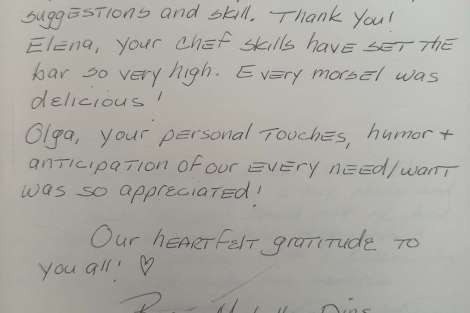 suggestions and skill. Thank you!
Elena, your chef skills have set the
bar so very high. Every morsel was
delicious!
Olga, your personal touches, humor +
anticipation of our every need/want
was so appreciated!
Our heartfelt gratitude to
you all! ♡